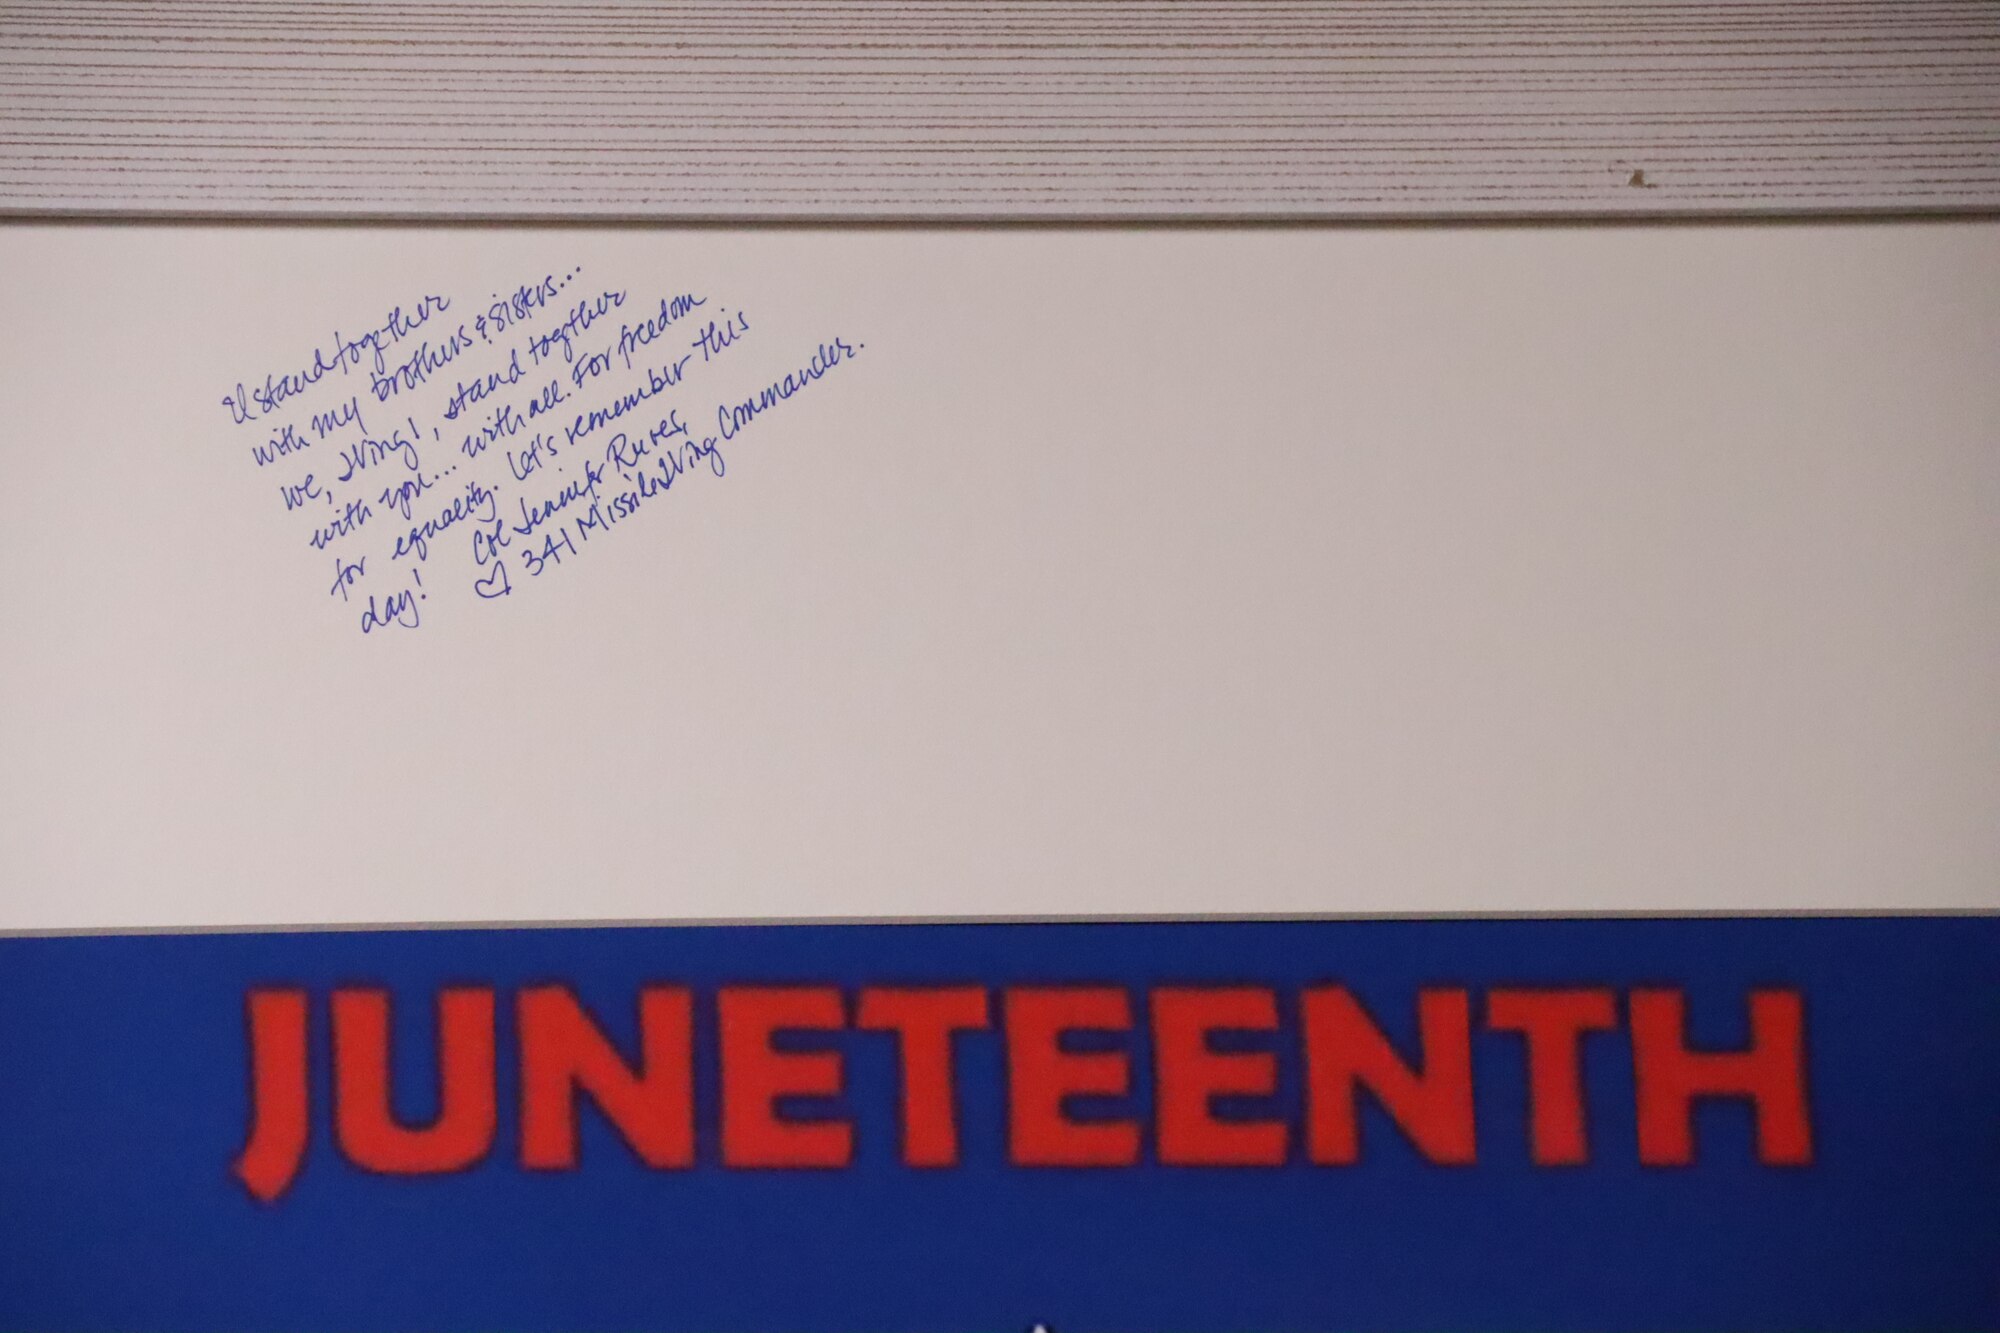 I stand together
with my brothers & sisters...
we, Wing 1, stand together
with you... with all. For freedom
for equality. Let's remember this
day! Col Jennifer Reeves,
♡ 341 Missile Wing Commander.
JUNETEENTH